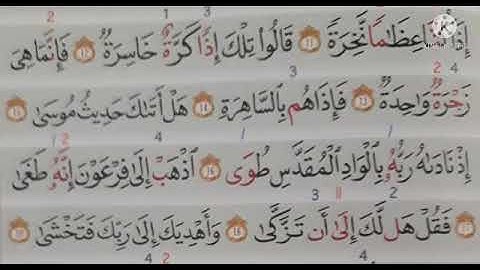 2 1 3
أَإِذَا كُنَّا عِظَٰمًا نَّخِرَةً ١١ قَالُوا تِلْكَ إِذًا كَرَّةٌ خَاسِرَةٌ ١٢ فَإِنَّمَا هِيَ
3 2 4
زَجْرَةٌ وَاحِدَةٌ ١٣ فَإِذَا هُم بِالسَّاهِرَةِ ١٤ هَلْ أَتَىٰكَ حَدِيثُ مُوسَىٰ ١٥
1 2 4 1 1
إِذْ نَادَىٰهُ رَبُّهُۥ بِالْوَادِ الْمُقَدَّسِ طُوًى ١٦ اذْهَبْ إِلَىٰ فِرْعَوْنَ إِنَّهُۥ طَغَىٰ
3 11 2
١٧ فَقُلْ هَل لَّكَ إِلَىٰ أَن تَزَكَّىٰ ١٨ وَأَهْدِيَكَ إِلَىٰ رَبِّكَ فَتَخْشَىٰ ١٩
4 2 4